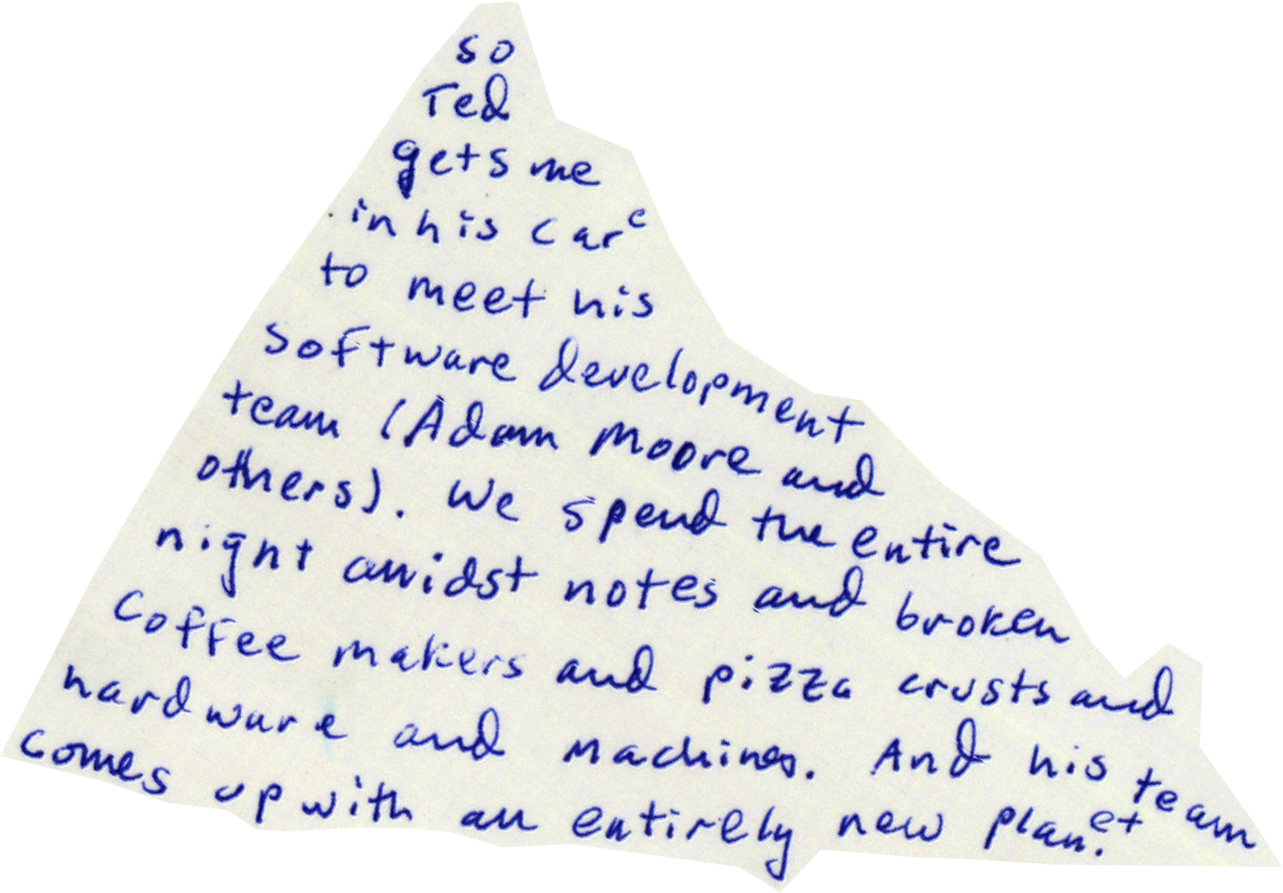 so
Ted
gets me
in his car c
to meet his
software development
team (Adam Moore and
others). We spend the entire
night amidst notes and broken
coffee makers and pizza crusts and
hardware and machines. And his team
comes up with an entirely new plan.et